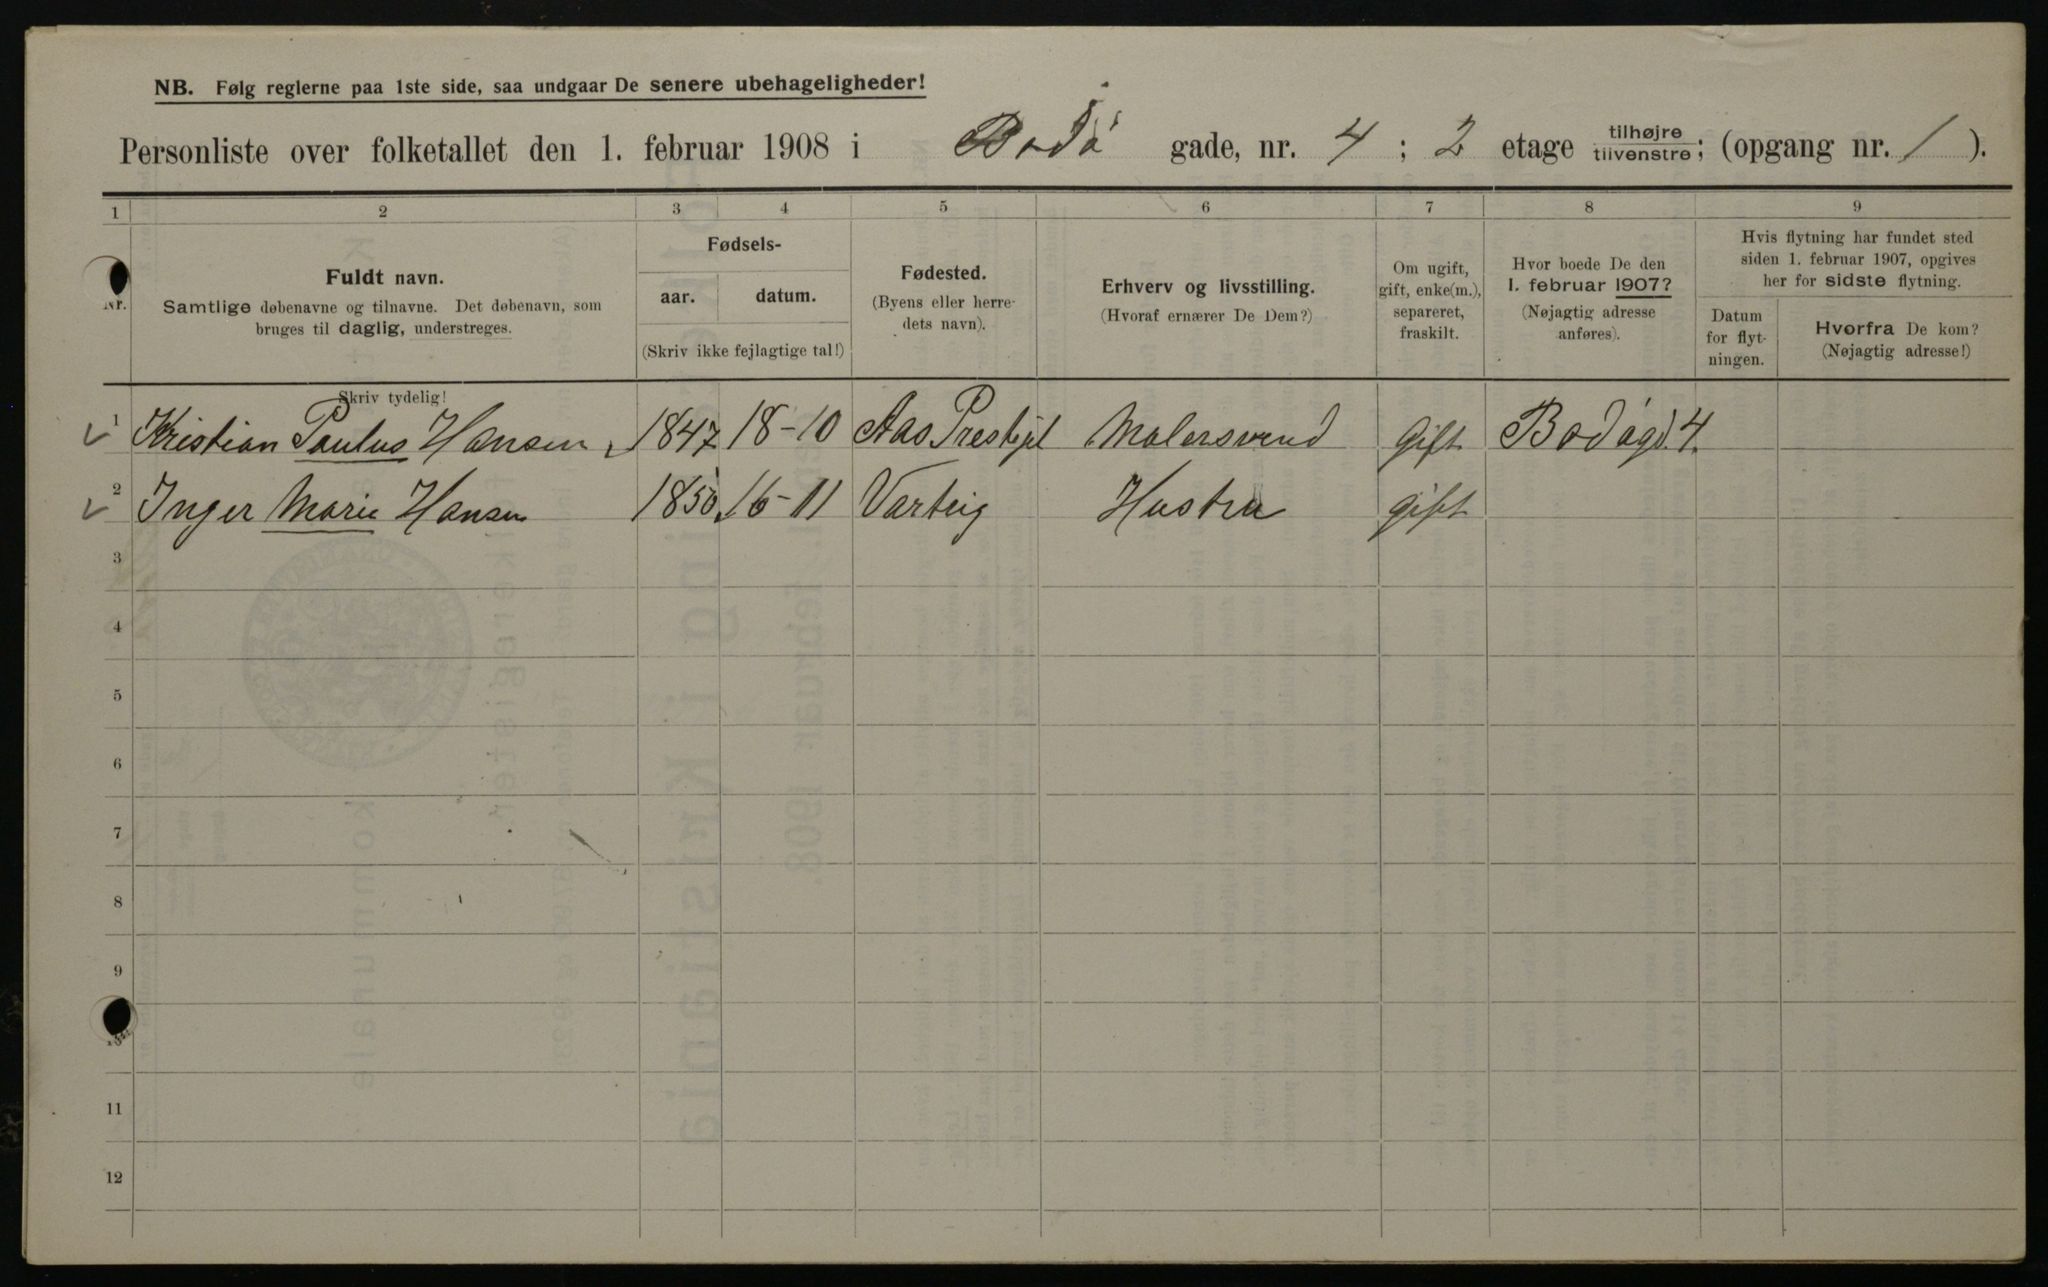 NB. Følg reglerne paa 1ste side, saa undgaar De senere ubehageligheder!
Personliste over folketallet den 1. februar 1908 i Bodö gade, nr. 4 ; 2 etage tilhøjre / tilvenstre ; (opgang nr. 1 ).
1 2 3 4 5 6 7 8 9
Nr.
Fuldt navn.
Samtlige døbenavne og tilnavne. Det døbenavn, som
bruges til daglig, understreges.
Fødsels-
aar. datum.
(Skriv ikke fejlagtige tal!)
Fødested.
(Byens eller herre-
dets navn).
Erhverv og livsstilling.
(Hvoraf ernærer De Dem?)
Om ugift,
gift, enke(m.),
separeret,
fraskilt.
Hvor boede De den
1. februar 1907?
(Nøjagtig adresse
anføres).
Hvis flytning har fundet sted
siden 1. februar 1907, opgives
her for sidste flytning.
Datum
for flyt-
ningen.
Hvorfra De kom?
(Nøjagtig adresse!)
Skriv tydelig!
1 Kristian Paulus Hansen 1847 18-10 Aas Prestgjel Malersvend gift Bodögd. 4.
2 Inger Marie Hansen 1850 16-11 Varteig Hustru gift
3
4
5
6
7
8
9
10
11
12